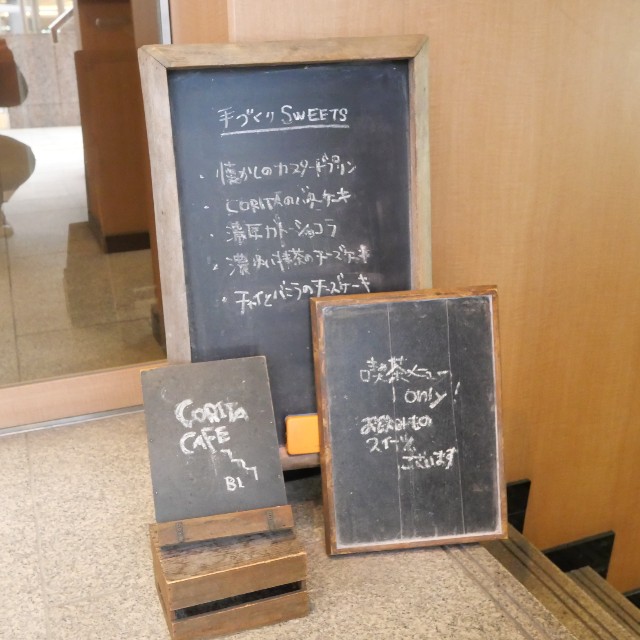 手づくりSWEETS
・懐かしのカスタードプリン
・CORITAのバターケーキ
・濃厚ガトーショコラ
・濃い抹茶のチーズケーキ
・チャイとバニラのチーズケーキ
喫茶メニュー
ONLY!
お飲みもの
スイーツ
ございます
CORITA
CAFE
B1